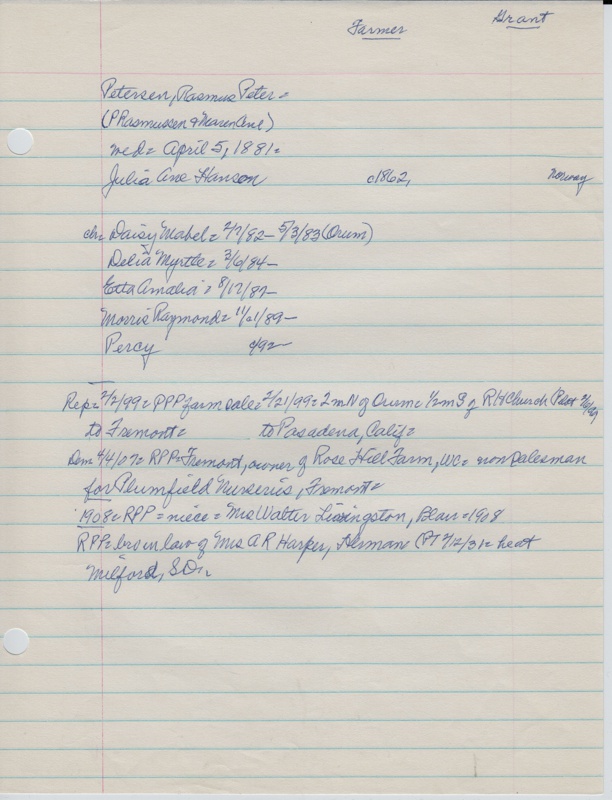 Grant
Farmer
Petersen, Rasmus Peter =
(P Rasmussen & Maren Ane)
md = April 5, 1881 =
Julia Ane Hanson c1862, Norway
ch = Daisy Mabel = 2/7/82 - 5/3/83 (Orum)
Delia Myrtle = 3/6/84 -
Etta Amalia = 8/17/87 -
Morris Raymond = 11/21/89 -
Percy c/92 -
Rep = 2/2/99 = RPP farm sale = 2/21/99 = 2 m N of Orum = 1/2 m S of RH Church
to Fremont = to Pasadena, Calif =
Dem 4/4/07 = RPP = Fremont, owner of Rose Hill Farm, WC = now salesman
for Plumfield Nurseries, Fremont =
1908 = RPP = niece = Mrs Walter Livingston, Blair = 1908
RPP = bro in law of Mrs A R Harper, Herman (PT 7/2/31 = heat
Milford, SD,